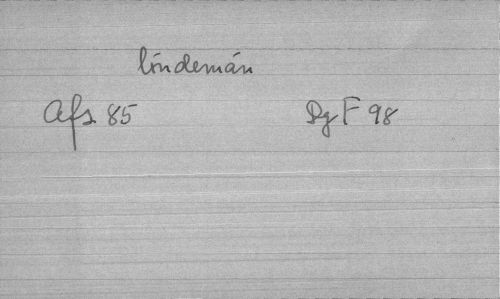 lindemán
Afs. 85 Dg F 98